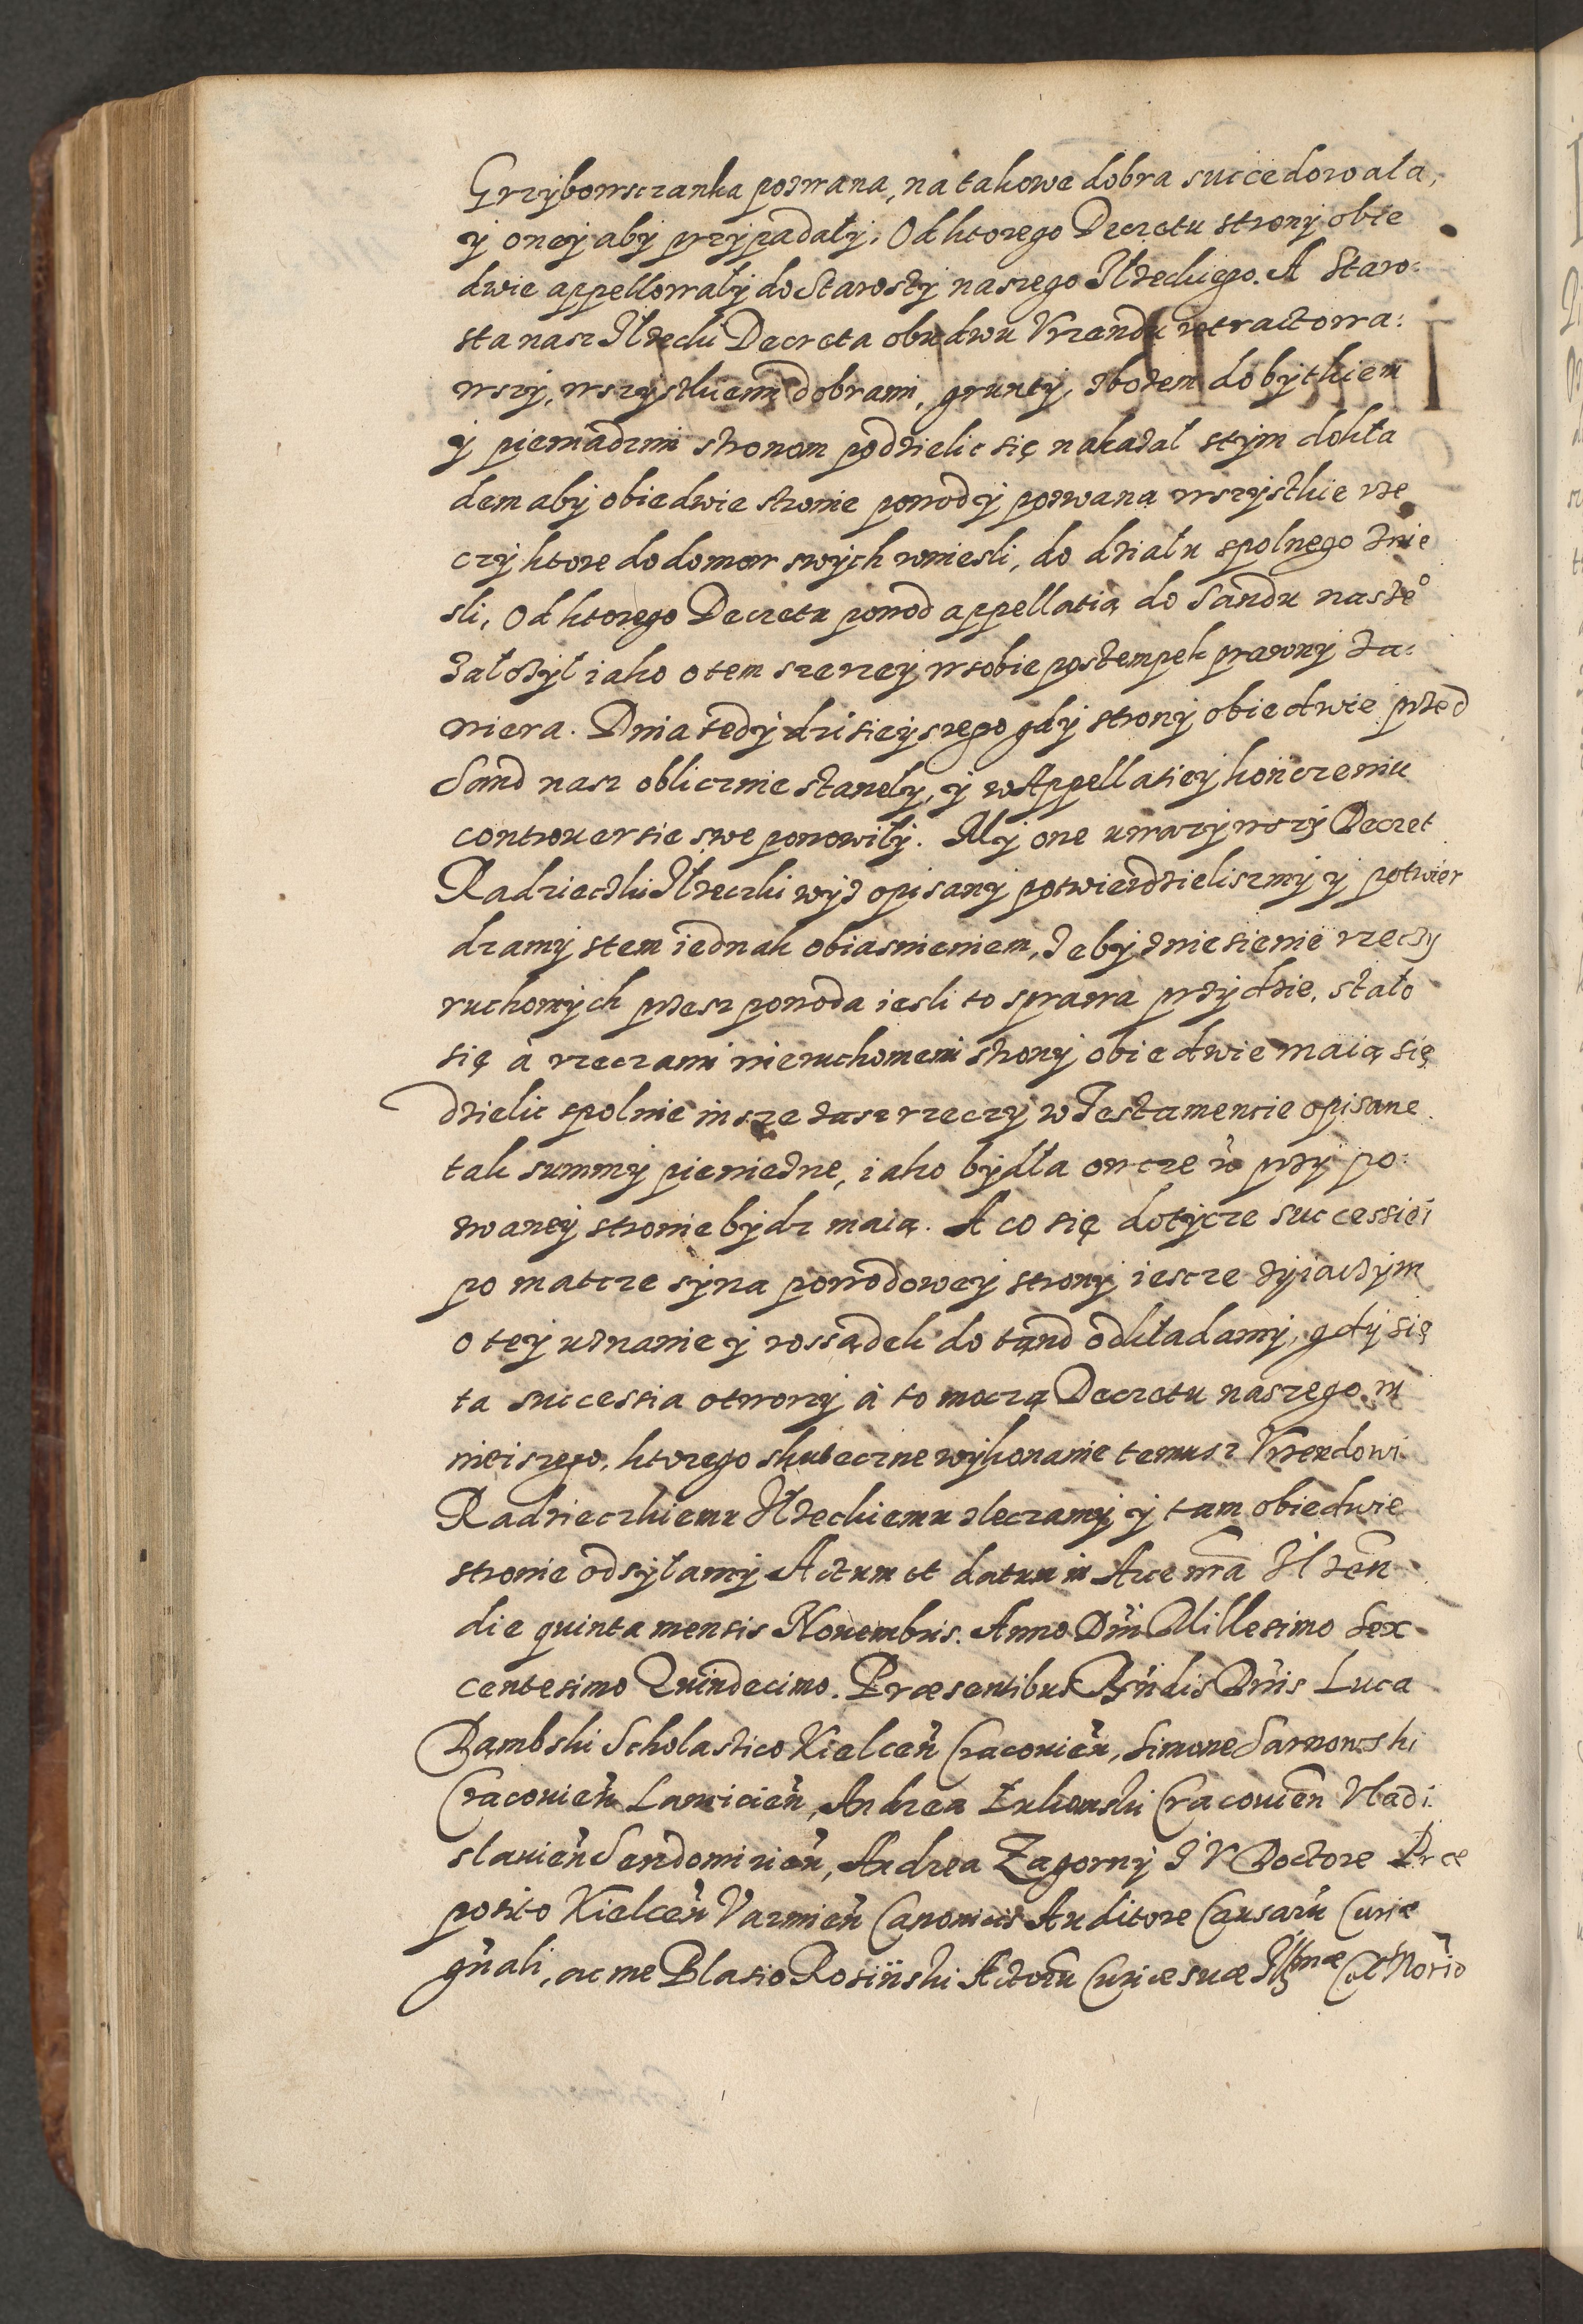 Grzybowsczanka pozwana, na takowe dobra succedowała,
y oney aby przypadały. Od ktorego Decretu strony obie
dwie appellowały do Starosty naszego Ilzeckiego. A Staro:
sta nasz Ilzecki Decreta obudwu Vrzendu retractowa:
wszy, wszystkiemi dobrami, grunty, zbozem dobytkiem
y pieniadzmi stronom podzielic się nakazał stym dokła
dem aby obiedwie stronie powod y pozwana wszystkie rze
czy ktore do domow swych wniesli, do działu spolnego znie
sli, Od ktorego Decretu powod appellatią do Sandu nasze°
załozył iako o tem szerzey w sobie postempek prawny za:
wiera. Dnia tedy dzisieyszego gdy strony obiedwie przed
Sand nasz oblicznie stanely, y w Appellatiey konczeniu
controuersie swe ponowiły. My one uwazywszy Decret
Radzieczki Ilzeczki wyz opisany potwierdzieliszmy y potwier
dzamy stem iednak obiasnieniem, zeby zniesienie rzeczy
ruchomych przesz powoda iesli to sprawa przydzie, stało
się à rzeczami nieruchomemi strony obiedwie maią się
dzielic spolnie insze zasz rzeczy w Testamencie opisane
tak summy pieniezne, iako bydła owcze przy po:
zwaney stronie bydz maią. A co się dotycze successiei
po matcze syna powodowey strony iescze zyiaczym
o tey uznanie y rossądek do tąnd odkładamy, gdy się
ta successia otworzy à to moczą Decretu naszego ni
nieiszego, ktorego skuteczne wykonanie temusz Vrzendowi
Radzieczkiemu Ilzeckiemu zleczamy y tam obiedwie
stronie odsyłamy Actum et datum in Arce nr̃a Ilzen̄
die quinta mensis Nouembris. Anno Dn̄i Millesimo Sex
centesimo Quindecimo. Præsentibus Rn̄dis Dn̄is Luca
Dąmbski Scholastico Kielcen̄ Cracouien̄, Simone Sarnowski
Cracouien̄ Lanicien̄, Andrea Łukowski Cracouien̄ Vladi
slauien̄ Sendomirien̄, Andrea Zagorny I V Doctore Præ
posito Kielcen̄ Varmien̄ Canonicis Auditore Causarū Curiæ
gn̄ali, ac me Blasio Rosiński Actorū Curiæ suæ Illmæ Cel Norīo